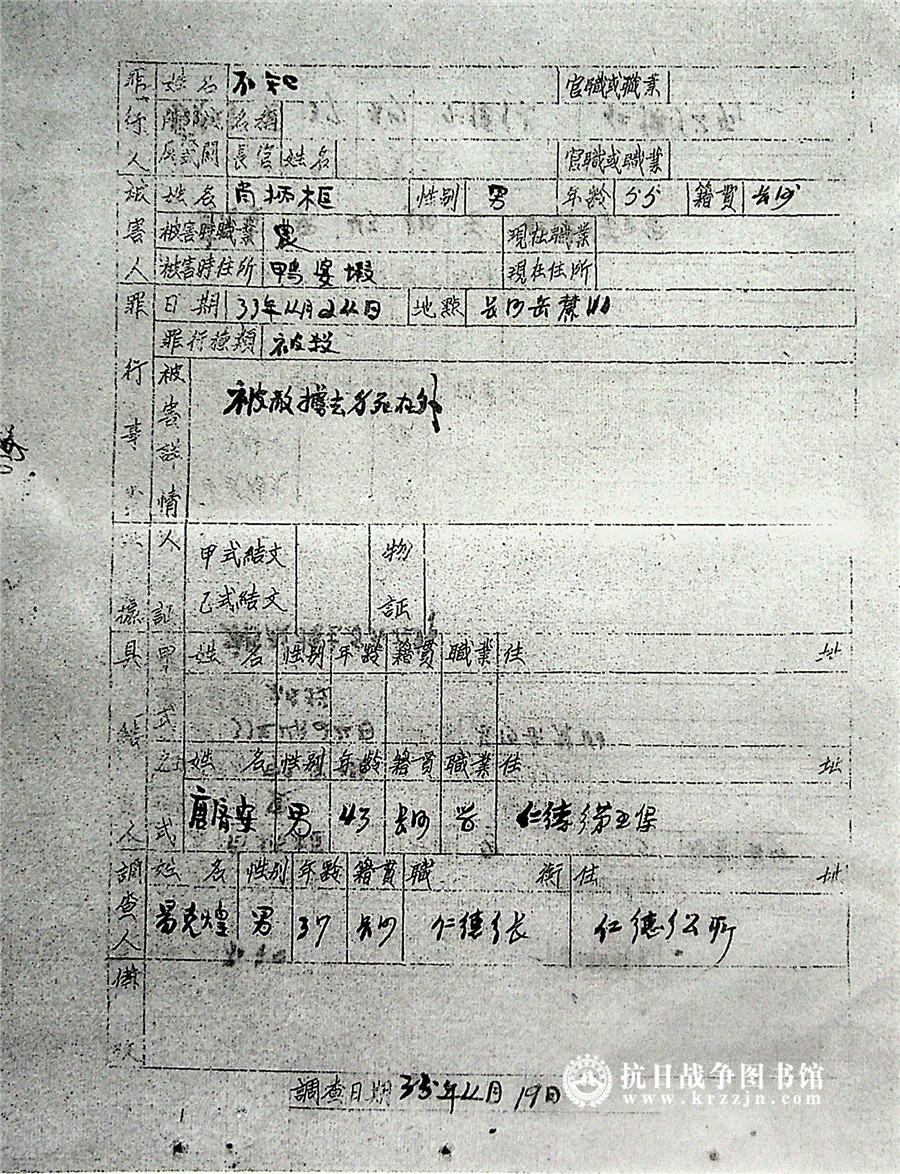 罪行人 姓名 不知 官職或職業
名稱
長官姓名 官職或職業
被害人 姓名 肖柄桓 性别 男 年齡 55 籍貫 長沙
被害時職業 農 現在職業
被害時住所 鴨婆塅 現在住所
罪行事 日期 33年4月24日 地點 長沙岳麓山
罪行種類 被殺
被害詳情 被敵擄去 死在外
人証 甲式結文 物証
乙式結文
具結人 甲式 姓名 性别 年齡 籍貫 職業 住址
乙式 姓名 性别 年齡 籍貫 職業 住址
唐 安 男 43 長沙 仁德乡第五保
調查人 姓名 性别 年齡 籍貫 職銜 住址
易克煌 男 37 長沙 仁德乡长 仁德乡公所
備攷
調查日期 35年4月19日
抗日战争图书馆
www.krzzjn.com